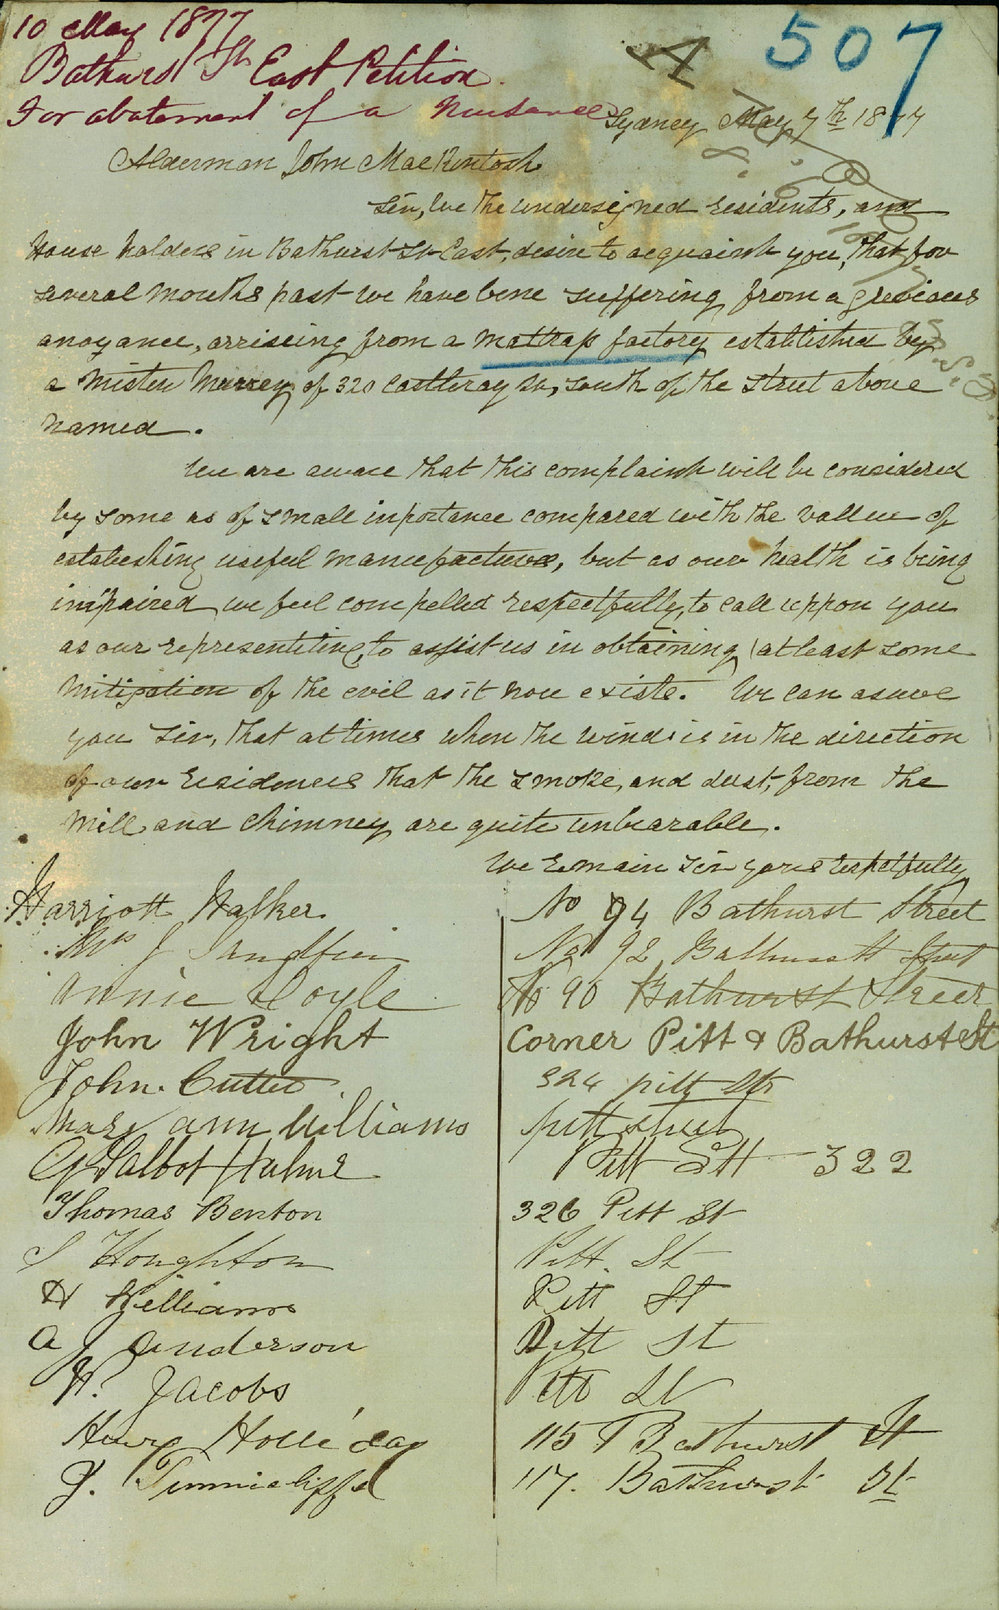 10 May 1877
Bathurst St East Petition
For abatement of a Nuisance
507
Sydney May 7th 1877
Alderman John MacKintosh
Sir, We the undersigned residents, and
House holders in Bathurst St East, desire to acquaint you, that for
several months past we have bene suffering from a grevious
anoyance, arriseing from a mattrass factory established by
a Mister Murrey of 320 Castleray St, south of the street above
named.
We are aware that this complaint will be considered
by some as of small inportance compared with the vallue of
establishing useful manufactures, but as our health is being
impaired we feel compelled respectfully, to call uppon you
as our representitive, to assist us in obtaining (at least some
mitigation of the evil as it now exists. We can asure
you Sir, that at times when the wind is in the direction
of our residences that the smoke, and dust, from the
Mill and chimney are quite unbearable.
We remain Sir yours respectfully
Harriott Walker No 94 Bathurst Street
Mrs J No 92 Bathurst Street
Annie Doyle No 90 Bathurst Street
John Wright Corner Pitt & Bathurst St
John. Cutter 324 pitt St
Mary ann Williams pitt street
G Talbot Hulme Pitt Stt 322
Thomas Benton 326 Pitt St
S Houghton Pitt. St
H Williams Pitt St
A J Anderson Pitt St
H. Jacobs Pitt St
Henry Holliday 115 Bathurst St
J. Tunnicliffe 117. Bathurst St